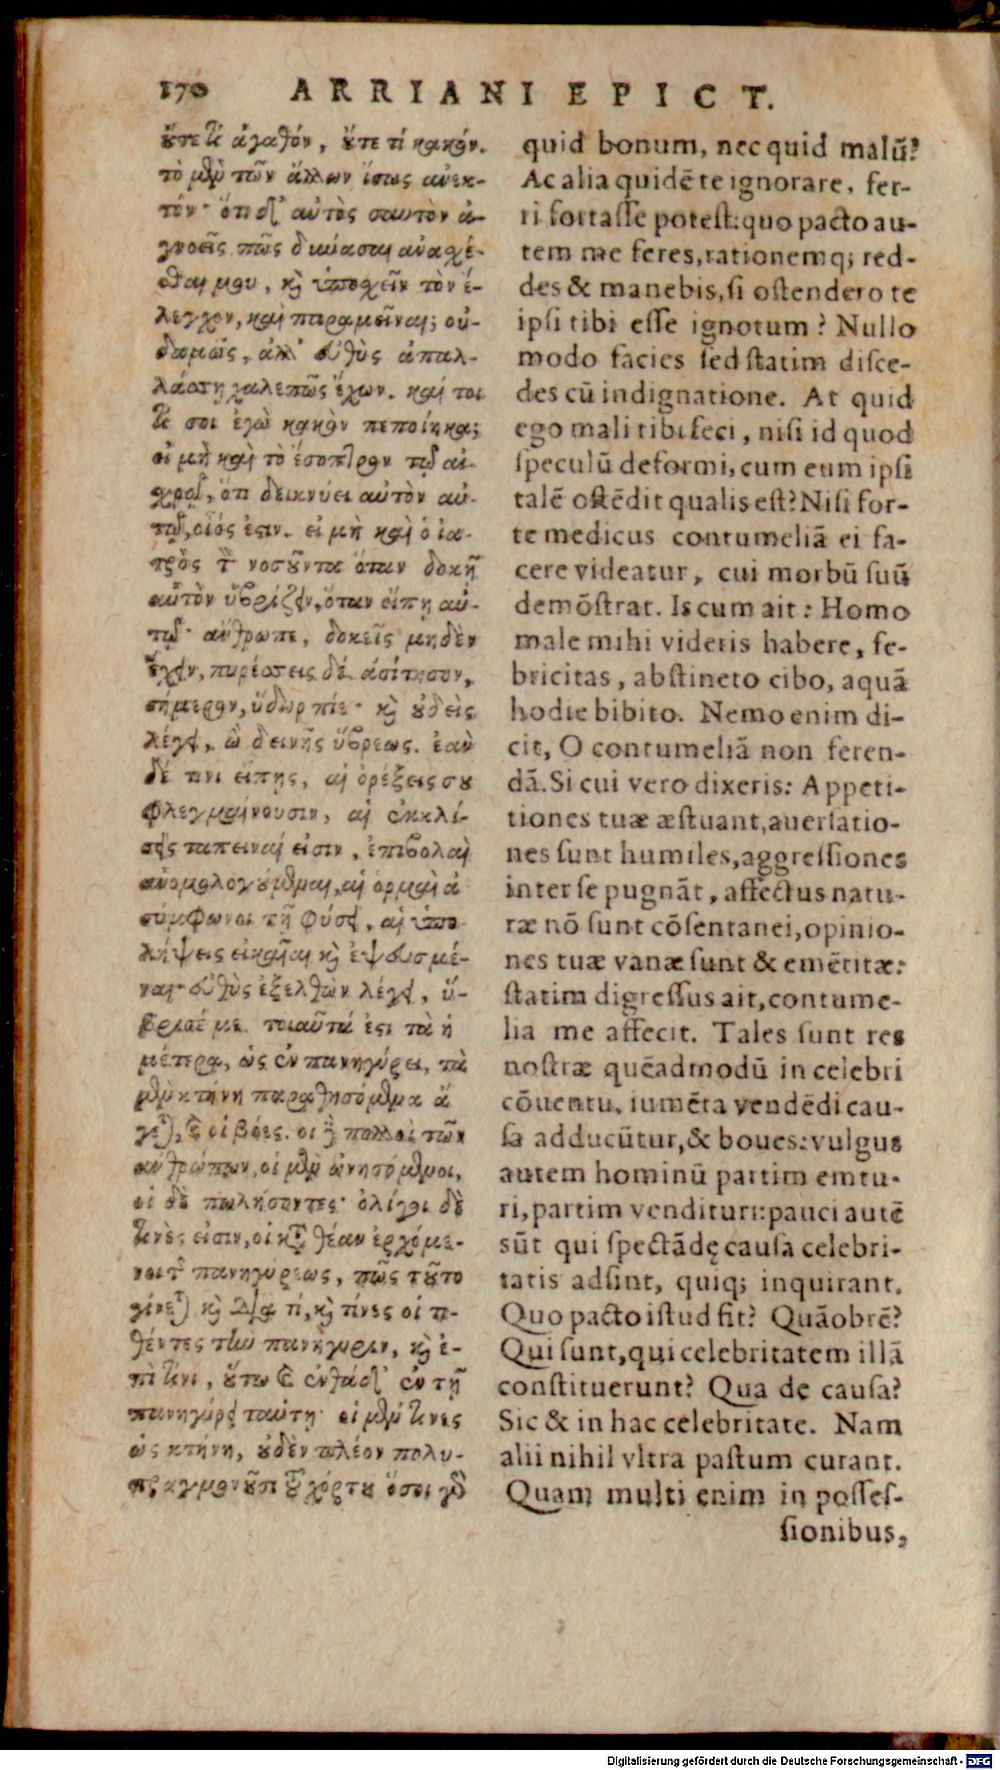 170 ARRIANI EPICT.
ὔτε τὶ ἀγαθόν, ὔτε τί κακόν.
τὸ μὲν τῶν ἄλλων ἴσως ἀνεκ-
τόν· ὅτι δ' αὐτὸς σαυτὸν ἀ-
γνοεῖς πῶς δυνάσαι ἀναχέ-
σθαι μου, καὶ ὑποχεῖν τὸν ἔ-
λεγχον, καὶ παραμεῖναι; οὐ-
δαμῶς, ἀλλ' εὐθὺς ἀπαλ-
λάττῃ χαλεπῶς ἔχων. καί τοι
τί σοι ἐγὼ κακὸν πεποίηκα;
εἰ μὴ καὶ τὸ ἔσοπτρον τῷ αἰ-
χρῷ, ὅτι δεικνύει αὐτὸν αὐ-
τῷ, οἷός ἐστιν. εἰ μὴ καὶ ὁ ἰα-
τρὸς τὸν νοσοῦντα ὅταν δοκῇ
αὐτὸν ὑβρίζειν, ὅταν εἴπῃ αὐ-
τῷ· ἄνθρωπε, δοκεῖς μηδὲν
ἔχειν, πυρέσσεις δέ. ἀσίτησον,
σήμερον, ὕδωρ πίε· καὶ οὐδεὶς
λέγει, ὢ δεινῆς ὕβρεως. ἐὰν
δέ τινι εἴπῃς, αἱ ὀρέξεις σου
φλεγμαίνουσιν, αἱ ἐκκλί-
σεις ταπειναί εἰσιν, ἐπιβολαὶ
ἀνομολογούμεναι, αἱ ὁρμαὶ ἀ
σύμφωνοι τῇ φύσει, αἱ ὑπο
λήψεις εἰκαῖαι καὶ ἐψευσμέ-
ναι· εὐθὺς ἐξελθὼν λέγει, ὕ-
βρισέ με. τοιαῦτά ἐστι τὰ ἡ
μέτερα, ὡς ἐν πανηγύρει, τὰ
μὲν κτήνη παραθησόμενα ἄ
γεται, καὶ οἱ βόες. οἱ δὲ πολλοὶ τῶν
ἀνθρώπων, οἱ μὲν ὠνησόμενοι,
οἱ δὲ πωλήσοντες· ὀλίγοι δέ
τινές εἰσιν, οἱ κατὰ θέαν ἐρχόμε-
νοι τῆς πανηγύρεως, πῶς τοῦτο
γίνεται καὶ διὰ τί, καὶ τίνες οἱ τι-
θέντες τὴν πανήγυριν, καὶ ἐ-
πὶ τίνι, οὕτω καὶ ἐνθάδ' ἐν τῇ
πανηγύρει ταύτῃ· οἱ μέν τινες
ὡς κτήνη, οὐδὲν πλέον πολυ-
πραγμονοῦσι τοῦ χόρτου ὅσοι γὰρ
quid bonum, nec quid malū?
Ac alia quidē te ignorare, fer-
ri fortasse potest: quo pacto au-
tem me feres, rationemq; red-
des & manebis, si ostendero te
ipsi tibi esse ignotum? Nullo
modo facies sed statim disce-
des cū indignatione. At quid
ego mali tibi feci, nisi id quod
speculū deformi, cum eum ipsi
talē ostēdit qualis est? Nisi for-
te medicus contumeliā ei fa-
cere videatur, cui morbū suū
demōstrat. Is cum ait: Homo
male mihi videris habere, fe-
bricitas, abstineto cibo, aquā
hodie bibito. Nemo enim di-
cit, O contumeliā non feren-
dā. Si cui vero dixeris: Appeti-
tiones tuæ æstuant, auersatio-
nes sunt humiles, aggressiones
inter se pugnāt, affectus natu-
ræ nō sunt cōsentanei, opinio-
nes tuæ vanæ sunt & emētitæ:
statim digressus ait, contume-
lia me affecit. Tales sunt res
nostræ quēadmodū in celebri
cōuentu, iumēta vendēdi cau-
sa adducūtur, & boues: vulgus
autem hominū partim emtu-
ri, partim vendituri: pauci autē
sūt qui spectādę causa celebri-
tatis adsint, quiq; inquirant.
Quo pacto istud fit? Quāobrē?
Qui sunt, qui celebritatem illā
constituerunt? Qua de causa?
Sic & in hac celebritate. Nam
alii nihil vltra pastum curant.
Quam multi enim in posses-
sionibus,
Digitalisierung gefördert durch die Deutsche Forschungsgemeinschaft - DFG